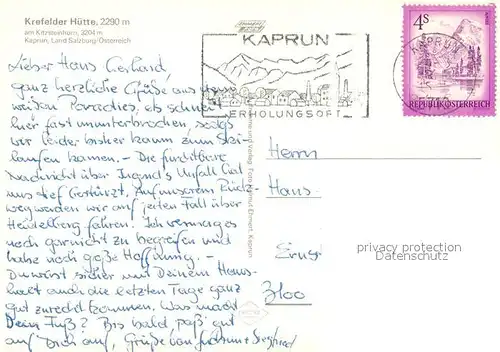 Krefelder Hütte, 2290 m
am Kitzsteinhorn, 3204 m
Kaprun, Land Salzburg/Österreich
KAPRUN
ERHOLUNGSORT
4S
REPUBLIK ÖSTERREICH
KAPRUN
Lieber Hans Gerhard,
ganz herzliche Grüße aus dem
weißen Paradies, es schneit
hier fast ununterbrochen, sodaß
wir leider bisher kaum zum Ski-
laufen kamen. – Die furchtbare
Nachricht über Ingrid's Unfall hat
uns tief bestürzt. Auf unserem Rück-
weg werden wir auf jeden Fall über
Heidelberg fahren. Ich vermag es
noch garnicht zu begreifen und
habe noch große Hoffnung. –
Du wirst sicher mit Deinem Haus-
halt auch die letzten Tage ganz
gut zurecht kommen. Was macht
Dein Fuß? Bis bald, paß' gut
auf Dich auf, Grüße von + Siegfried
Herrn
Hans
Ernst
privacy protection
Datenschutz